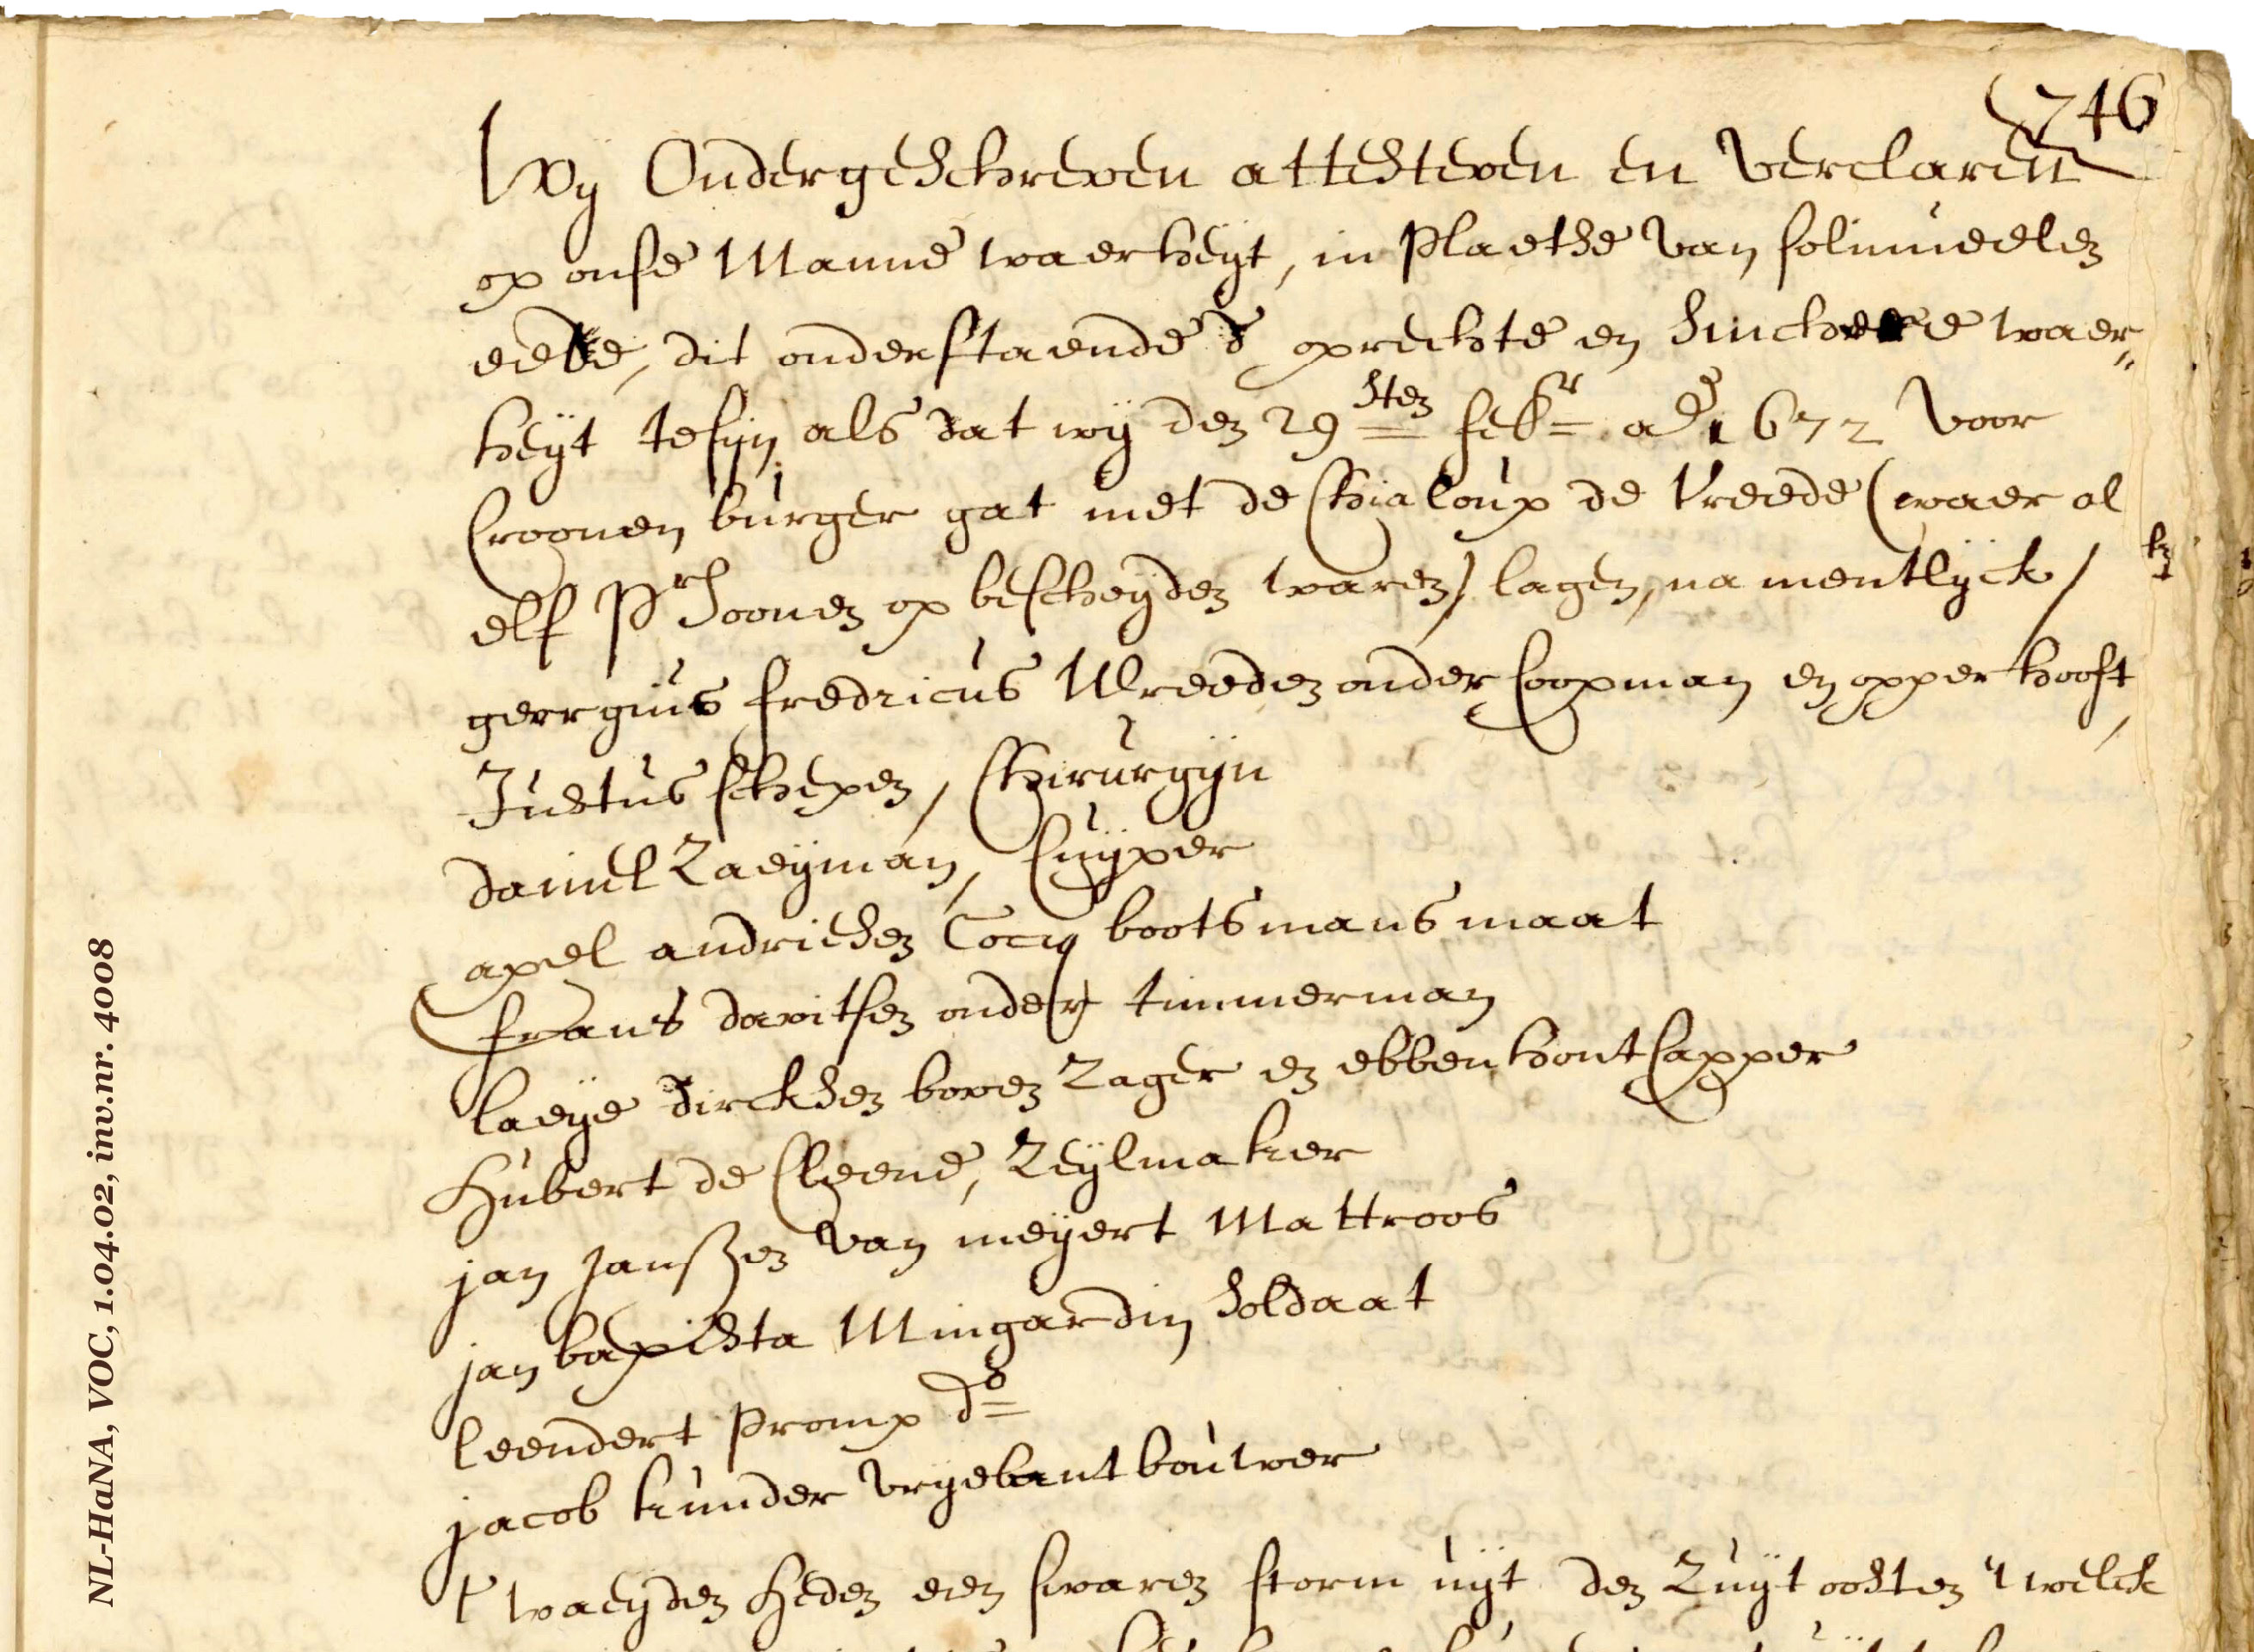 746
Wy Ondergeschreven attesteren en verclaren
op onse Manne waerheyt, in Plaetse van solimneelen
eede, dit onderstaende d' oprechte en sinchere waer„
heÿt te sijn, als dat wij den 29 sten febr. ao 1672 voor
Croonenburger gat met de Chialoup de Vreede (waer al
elf Prsoonen op bescheyden waren) lagen, namentlyck /
gerrgius fredricus Wreeden onder Coopman en opperhooft,
Justus schepen, Chirurgijn
daniel Zaeijman, Cuijper
axel andriesen Cocq bootsmans maat
frans davitsen onder timmerman
laeije dircksen boven Zager en ebbenhout Capper
Hubert de Cleene, Zeijlmaker
jan Janszen van meijert Mattroos
jan bapista Mingardin soldaat
leendert Promp do
jacob kunder vryelantbouwer
T waeijden heden een swaren storm uijt den Zuijt oosten 't welck
NL-HaNA, VOC, 1.04.02, inv.nr. 4008